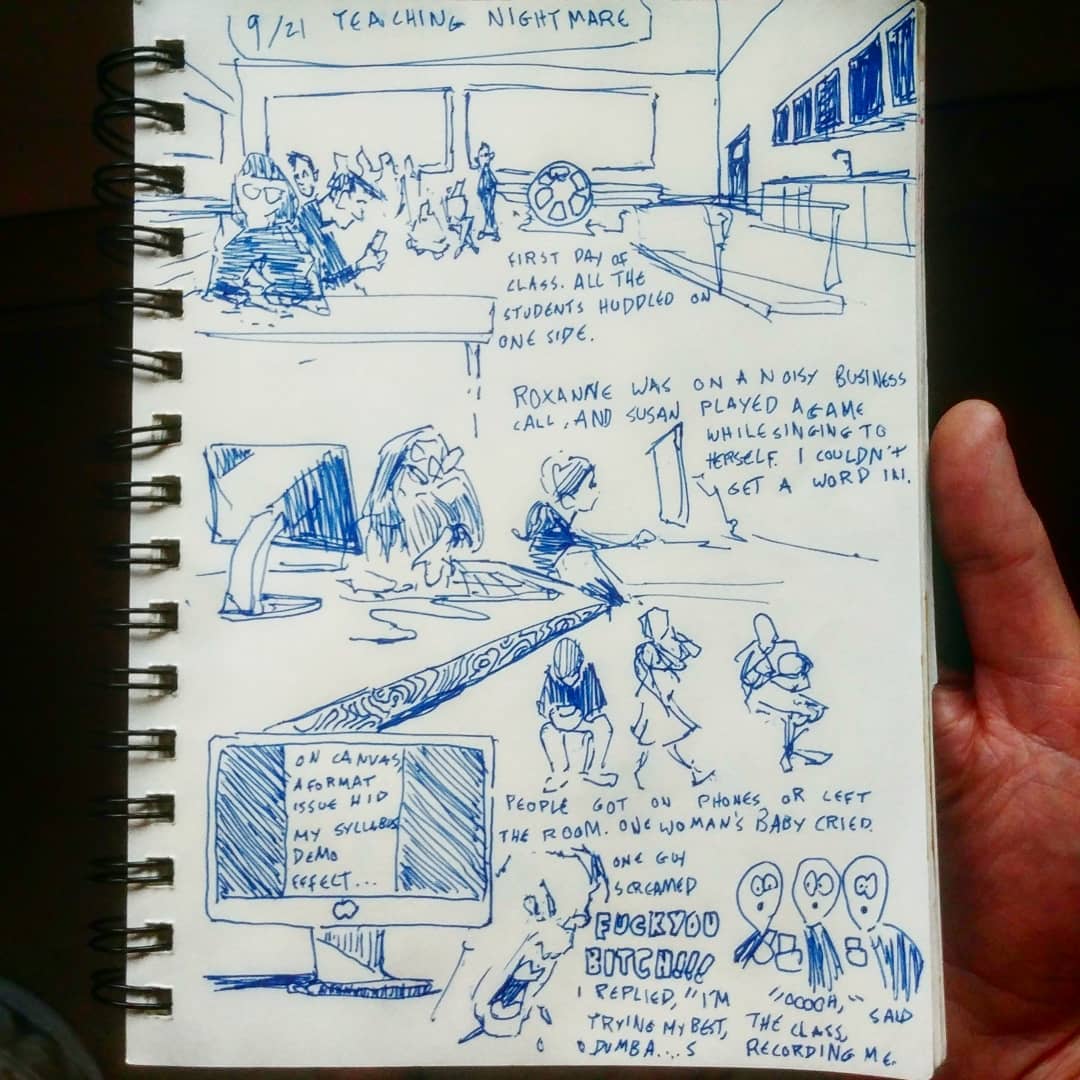 9/21 TEACHING NIGHTMARE
FIRST DAY OF
CLASS. ALL THE
STUDENTS HUDDLED ON
ONE SIDE.
ROXANNE WAS ON A NOISY BUSINESS
CALL, AND SUSAN PLAYED A GAME
WHILE SINGING TO
HERSELF. I COULDN'T
GET A WORD IN.
ON CANVAS
A FORMAT
ISSUE HID
MY SYLLABUS
DEMO
EFFECT...
PEOPLE GOT ON PHONES, OR LEFT
THE ROOM. ONE WOMAN'S BABY CRIED.
ONE GUY
SCREAMED
FUCK YOU
BITCH!!!
I REPLIED, "I'M
TRYING MY BEST,
DUMBA...S
"OOOOH," SAID
THE CLASS,
RECORDING ME.